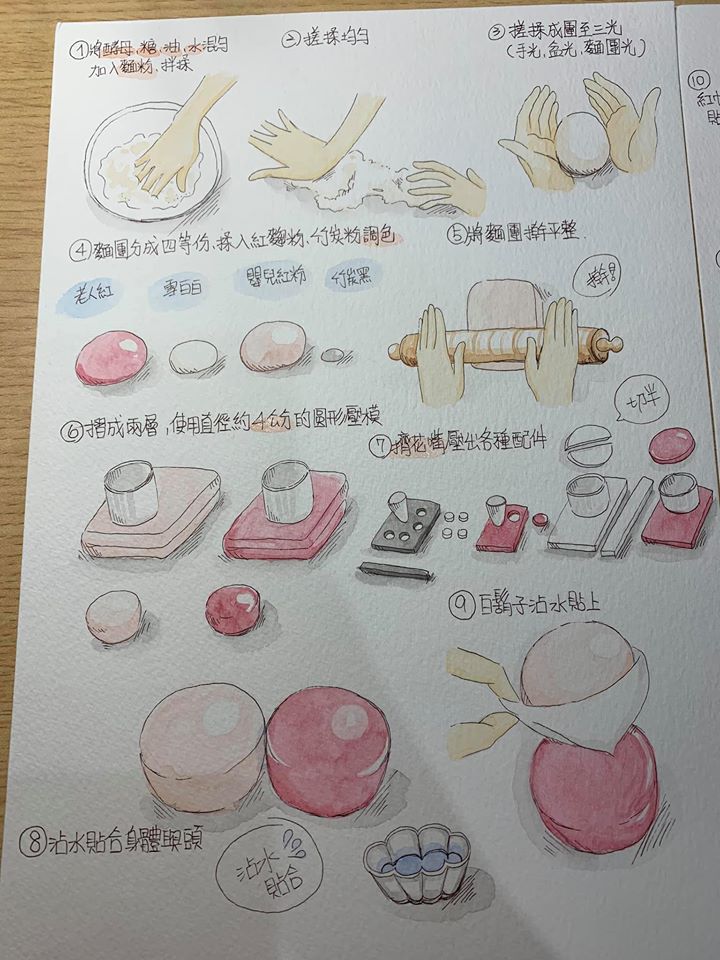 ①將酵母、糖、油、水混勻
加入麵粉、拌揉
②搓揉均勻
③搓揉成團至三光
(手光,盆光,麵團光)
④麵團分成四等份、揉入紅麴粉、竹炭粉調色
老人紅
雪白白
嬰兒紅粉
竹炭黑
⑤將麵團擀平整
⑥摺成兩層,使用直徑約4公分的圓形壓模
⑦擠花嘴壓出各種配件
切半
⑧沾水貼合身體與頭
沾水
貼合
⑨白鬍子沾水貼上
⑩
紅巾
貼